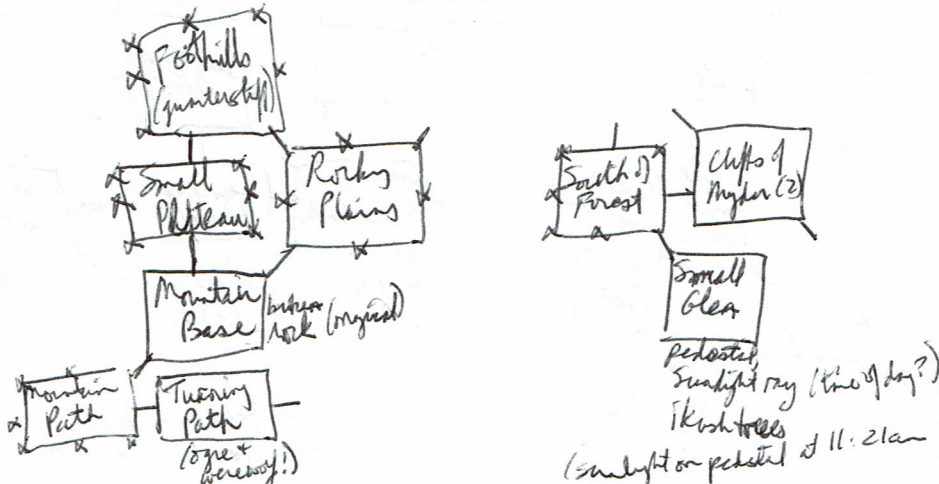 Foothills
(quarterstaff)
Small
Plateau
Rocky
Plains
Mountain
Base
broken
rock (original)
Mountain
Path
Turning
Path
(ogre +
werewolf!)
South of
Forest
Cliffs of
(2)
Small
Glen
pedestal,
Sunlight ray (time of day?)
trees
(sunlight on pedestal at 11:21am